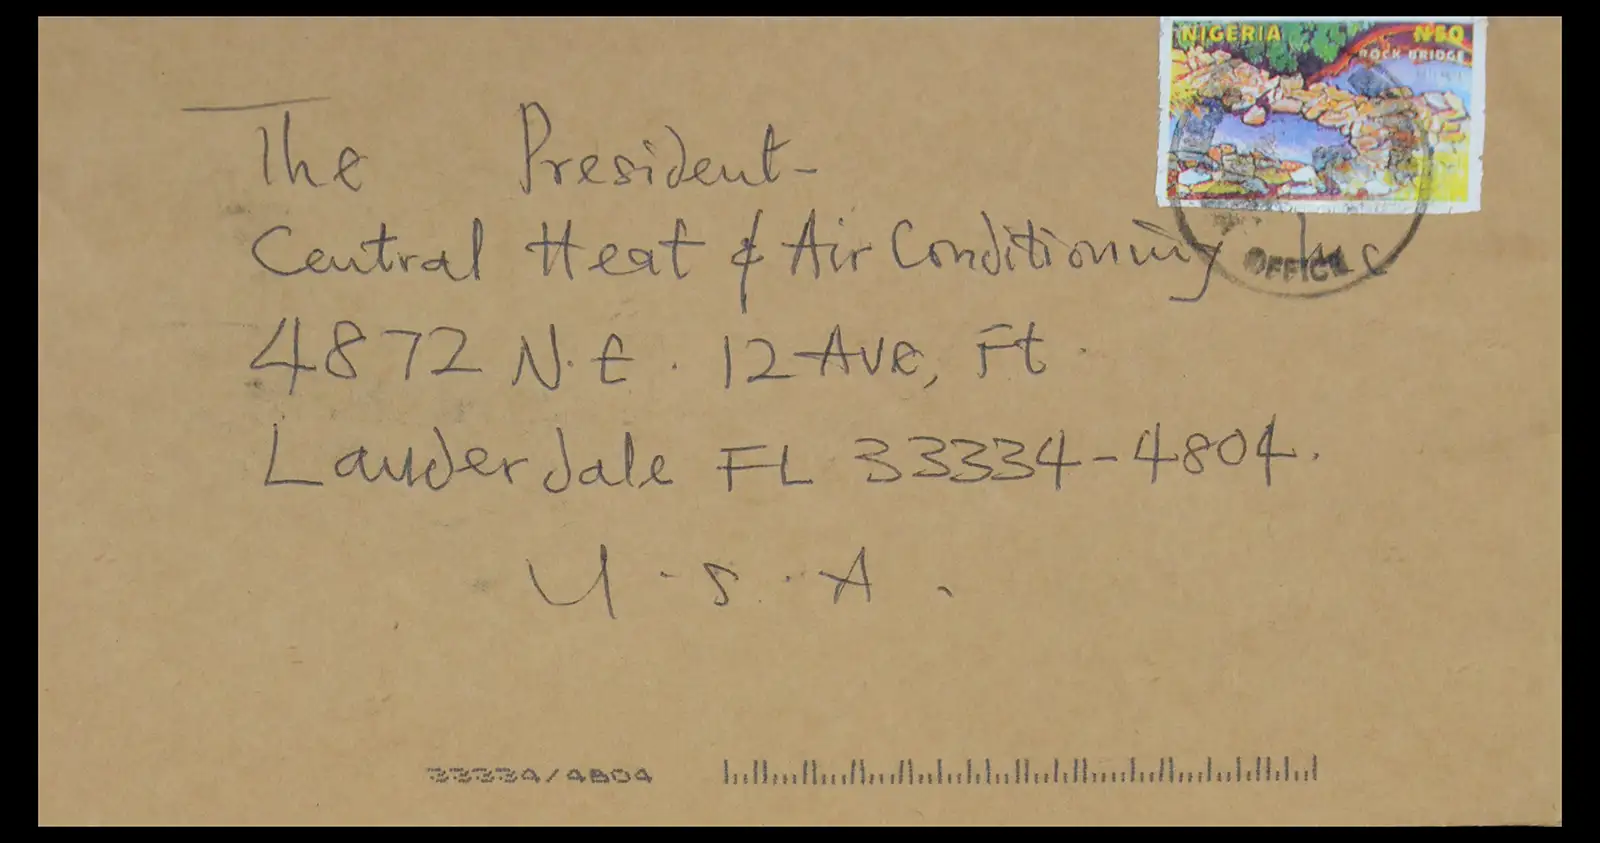 NIGERIA N50
ROCK BRIDGE
The President
Central Heat & Air Conditioning Inc
OFFICE
4872 N.E. 12 Ave, Ft.
Lauderdale FL 33334-4804.
U.S.A.
33334/4804